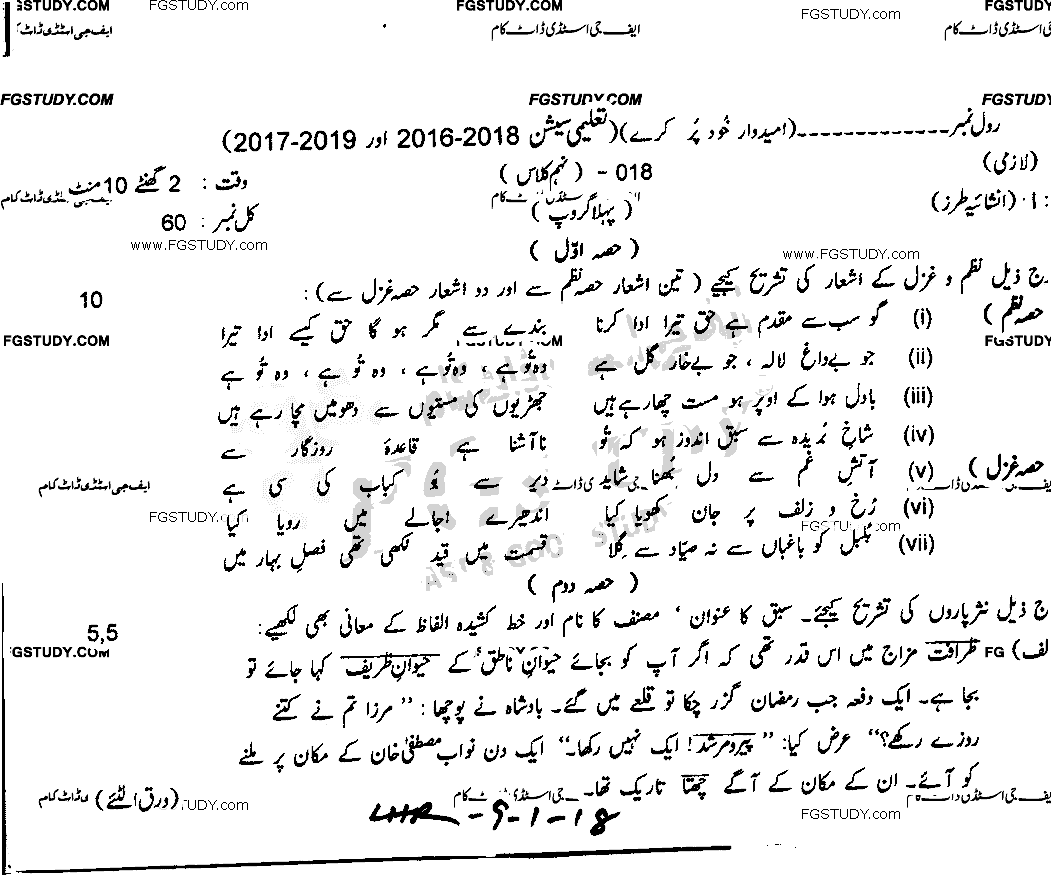 GSTUDY.COM FGSTUDY.COM FGSTUDY.COM FGSTUDY.COM FGSTUDY
ایف جی اسٹڈی ڈاٹ کام ایف جی اسٹڈی ڈاٹ کام ئی اسٹڈی ڈاٹ کام
FGSTUDY.COM FGSTUDY.COM FGSTUDY
رول نمبر------------(امیدوار خود پُر کرے)(تعلیمی سیشن 2018-2016 اور 2019-2017)
(لازمی) 018 - (نہم کلاس) وقت : 2 گھنٹے 10 منٹ
: I (انشائیہ طرز) (پہلا گروپ) کل نمبر : 60
www.FGSTUDY.com www.FGSTUDY.com
( حصہ اوّل )
ج ذیل نظم و غزل کے اشعار کی تشریح کیجیے ( تین اشعار حصہ نظم سے اور دو اشعار حصہ غزل سے) : 10
حصہ نظم ) (i) گو سب سے مقدم ہے حق تیرا ادا کرنا بندے سے مگر ہو گا حق کیسے ادا تیرا
FGSTUDY.COM FGSTUDY
(ii) جو بے داغ لالہ ، جو بے خار گل ہے وہ تُو ہے ، وہ تُو ہے ، وہ تُو ہے ، وہ تُو ہے
(iii) بادل ہوا کے اوپر ہو مست چھا رہے ہیں جھڑیوں کی مستیوں سے دھومیں مچا رہے ہیں
(iv) شاخِ بُریدہ سے سبق اندوز ہو کہ تُو ناآشنا ہے قاعدۂ روزگار سے
حصہ غزل ) (v) آتشِ غم سے دل بُھنا شاید دیر سے بُو کباب کی سی ہے
ایف جی اسٹڈی ڈاٹ کام
(vi) رُخ و زلف پر جان کھویا کیا اندھیرے اجالے میں رویا کیا
FGSTUDY. om FGS .om
(vii) بُلبل کو باغباں سے نہ صیّاد سے گلا قسمت میں قید لکھی تھی فصلِ بہار میں
( حصہ دوم )
ج ذیل نثرپاروں کی تشریح کیجئے۔ سبق کا عنوان ، مصنف کا نام اور خط کشیدہ الفاظ کے معانی بھی لکھیے: 5,5
لف) FG ظرافت مزاج میں اس قدر تھی کہ اگر آپ کو بجائے حیوانِ ناطق کے حیوانِ ظریف کہا جائے تو
GSTUDY.COM
بجا ہے۔ ایک دفعہ جب رمضان گزر چکا تو قلعے میں گئے۔ بادشاہ نے پوچھا : ” مرزا تم نے کتنے
روزے رکھے؟“ عرض کیا: ” پیرومرشد! ایک نہیں رکھا۔“ ایک دن نواب مصطفٰی خان کے مکان پر ملنے
کو آئے۔ ان کے مکان کے آگے چھتا تاریک تھا۔ (ورق الٹئے)
FGSTUDY.com
LHR-9-1-18